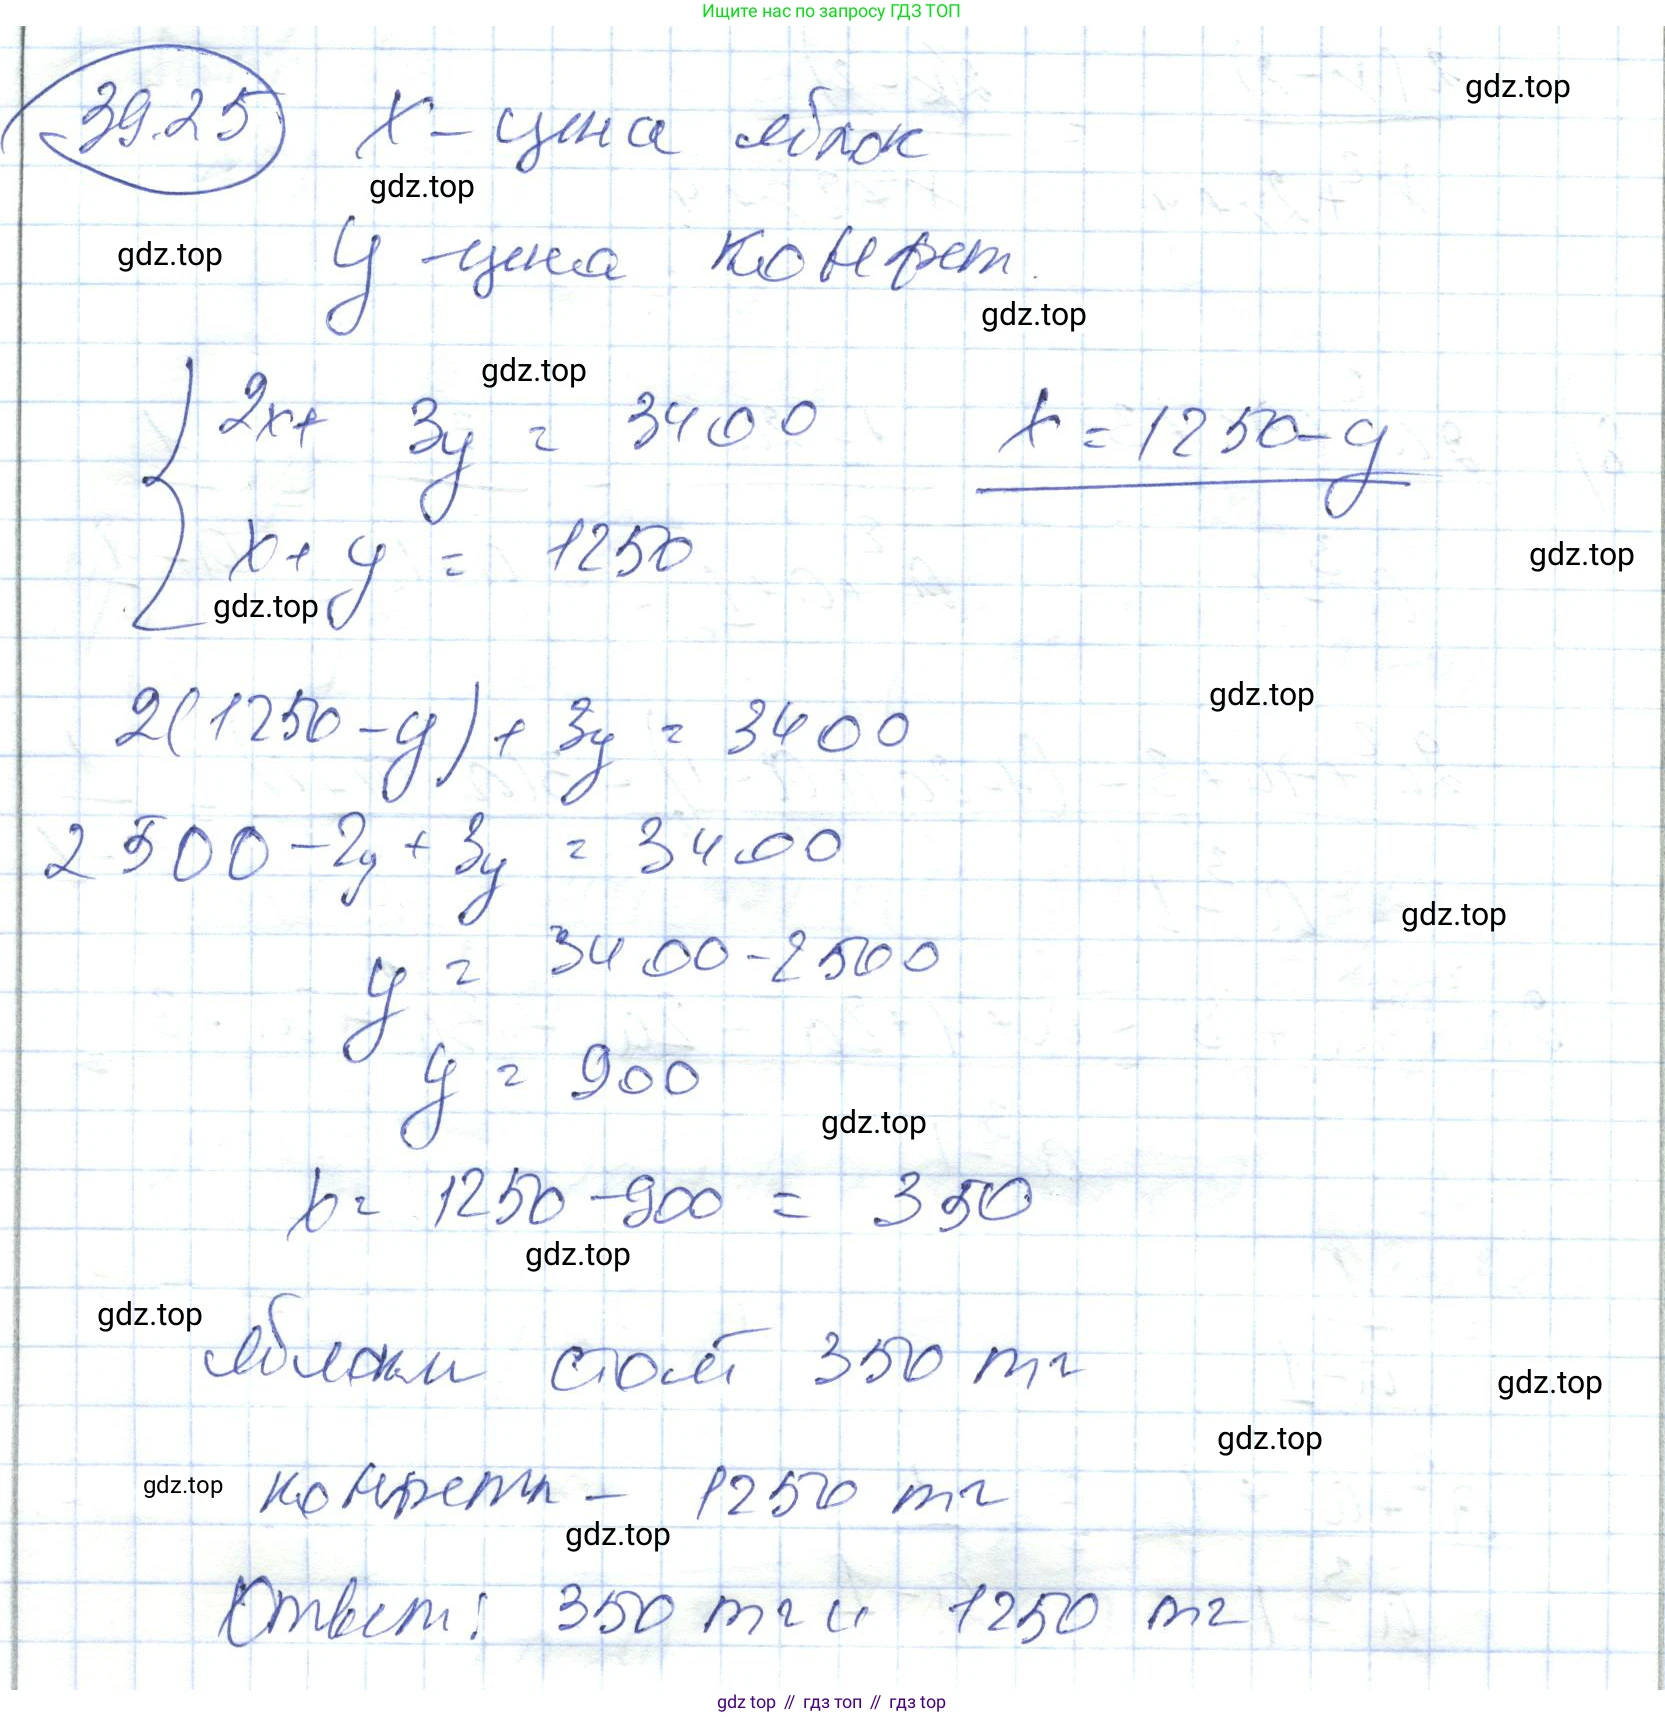 Ищите нас по запросу ГДЗ ТОП
gdz.top
39.25 x – цена яблок
gdz.top
gdz.top
y – цена конфет
gdz.top
gdz.top
2x + 3y = 3400 x = 1250 – y
x + y = 1250
gdz.top
gdz.top
gdz.top
2(1250 – y) + 3y = 3400
2500 – 2y + 3y = 3400
gdz.top
y = 3400 – 2500
y = 900
gdz.top
x = 1250 – 900 = 350
gdz.top
gdz.top
яблоки стоят 350 тг
gdz.top
gdz.top
gdz.top
конфеты – 1250 тг
gdz.top
Ответ: 350 тг и 1250 тг
gdz top // гдз топ // гдз top